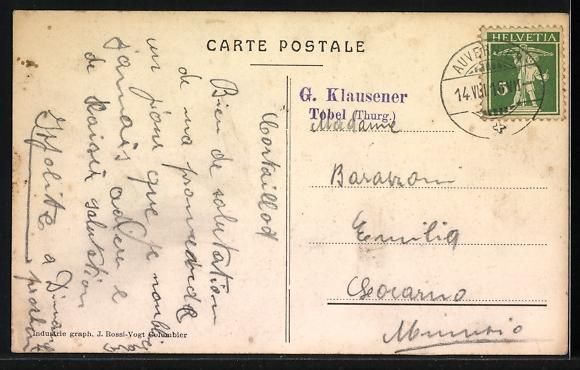 CARTE POSTALE
HELVETIA
5
AUVE
14.VII.15.VII
G. Klausener
Tobel (Thurg.)
Madame
Barazzoni
Emilia
Locarno
Minusio
Cortaillod
Bien de salutation
de ma promenade
un jour que je
jamais adieu e
de salutation
Ippolita a
Industrie graph. J. Rossi-Vogt Colombier